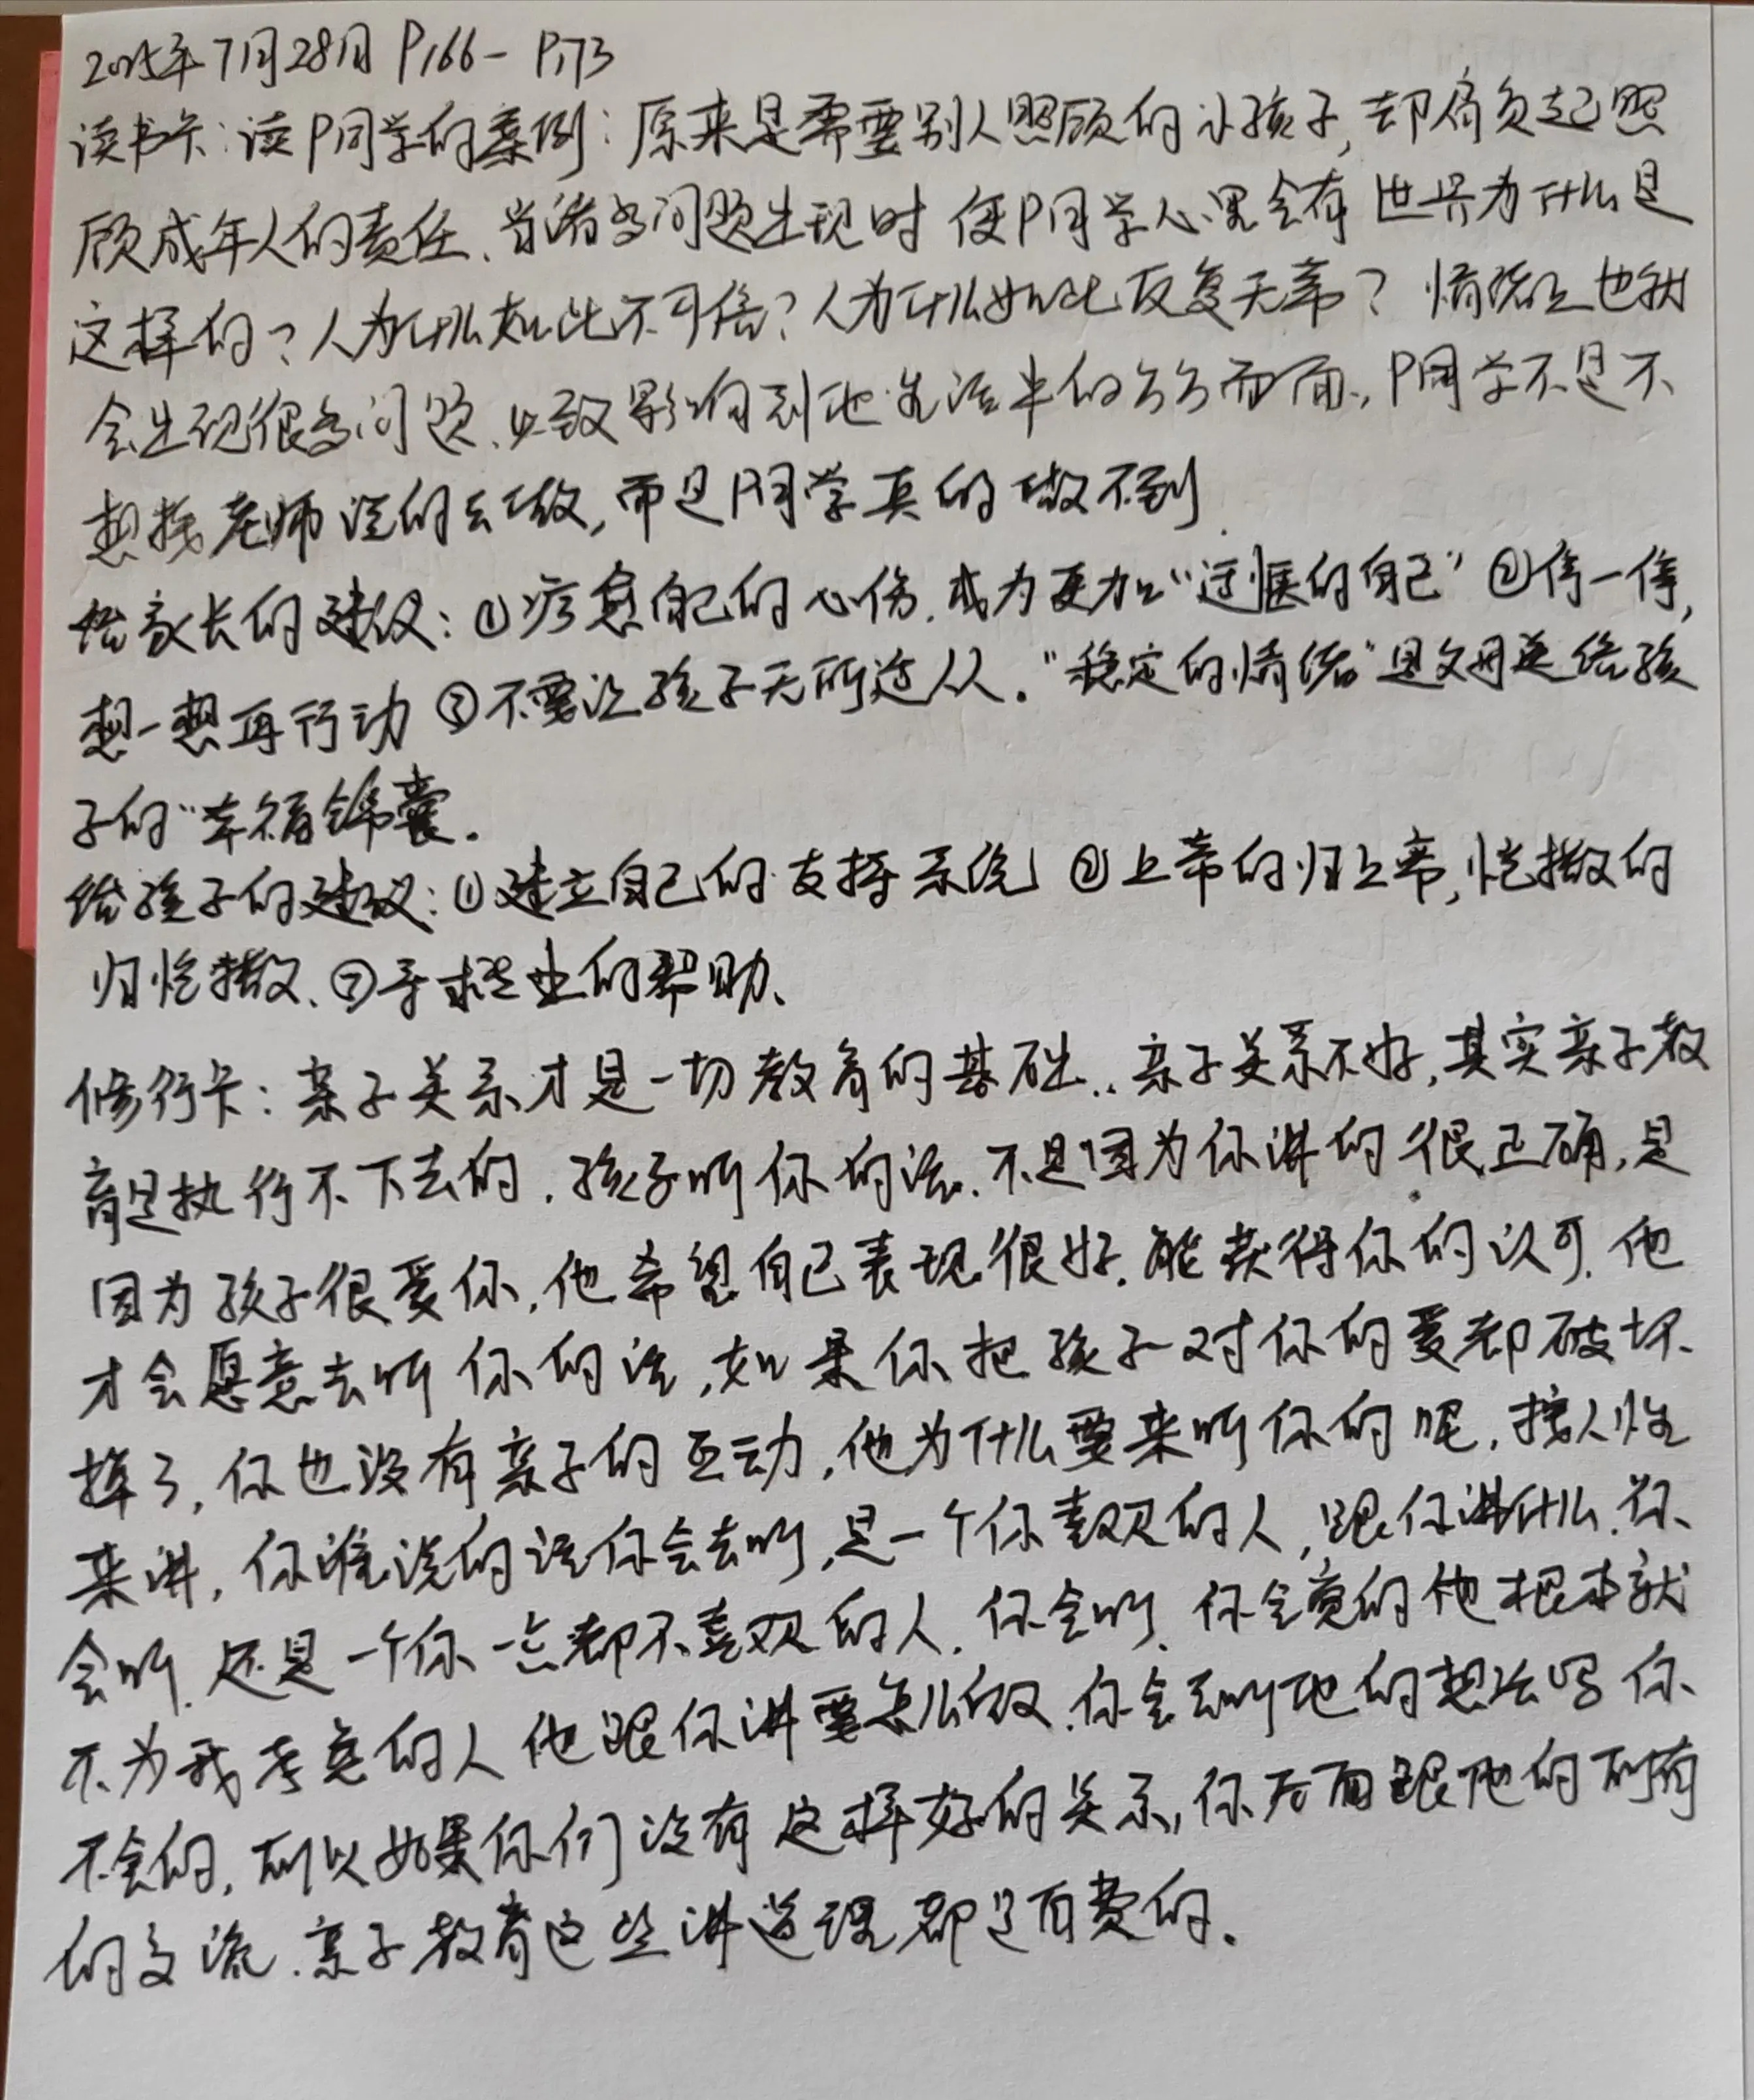 2025年7月28日 P166- P173
读书卡:读P同学的案例:原来是需要别人照顾的小孩子,却肩负起照
顾成年人的责任、当诸多问题出现时 使P同学心里会有 世界为什么是
这样的?人为什么如此不可信?人为什么如此反复无常? 情绪上也就
会出现很多问题、以致影响到他生活中的方方面面.,P同学不是不
想按老师说的去做,而是P同学真的做不到.
给家长的建议:①疗愈自己的心伤.成为更加“返惬的自己”②停一停,
想一想再行动 ③不要让孩子无所适从.“稳定的情绪”是父母送给孩
子的“幸福锦囊.
给孩子的建议:①建立自己的支持系统 ②上帝的归上帝,恺撒的
归恺撒、③寻求专业的帮助、
修行卡:亲子关系才是一切教育的基础..亲子关系不好,其实亲子教
育是执行不下去的.孩子听你的话.不是因为你讲的很正确,是
因为孩子很爱你,他希望自己表现很好.能获得你的认可.他
才会愿意去听你的话,如果你把孩子对你的爱都破坏
掉了,你也没有亲子的互动,他为什么要来听你的呢.按人性
来讲,你谁说的话你会去听,是一个你喜欢的人,跟你讲什么.你
会听.还是一个你一点都不喜欢的人.你会听.你会觉的他根本就
不为我考虑的人他跟你讲要怎么做.你会去听他的想法吗 你
不会的,所以如果你们没有这样好的关系,你后面跟他的所有
的交流.亲子教育这些讲道理都是白费的.